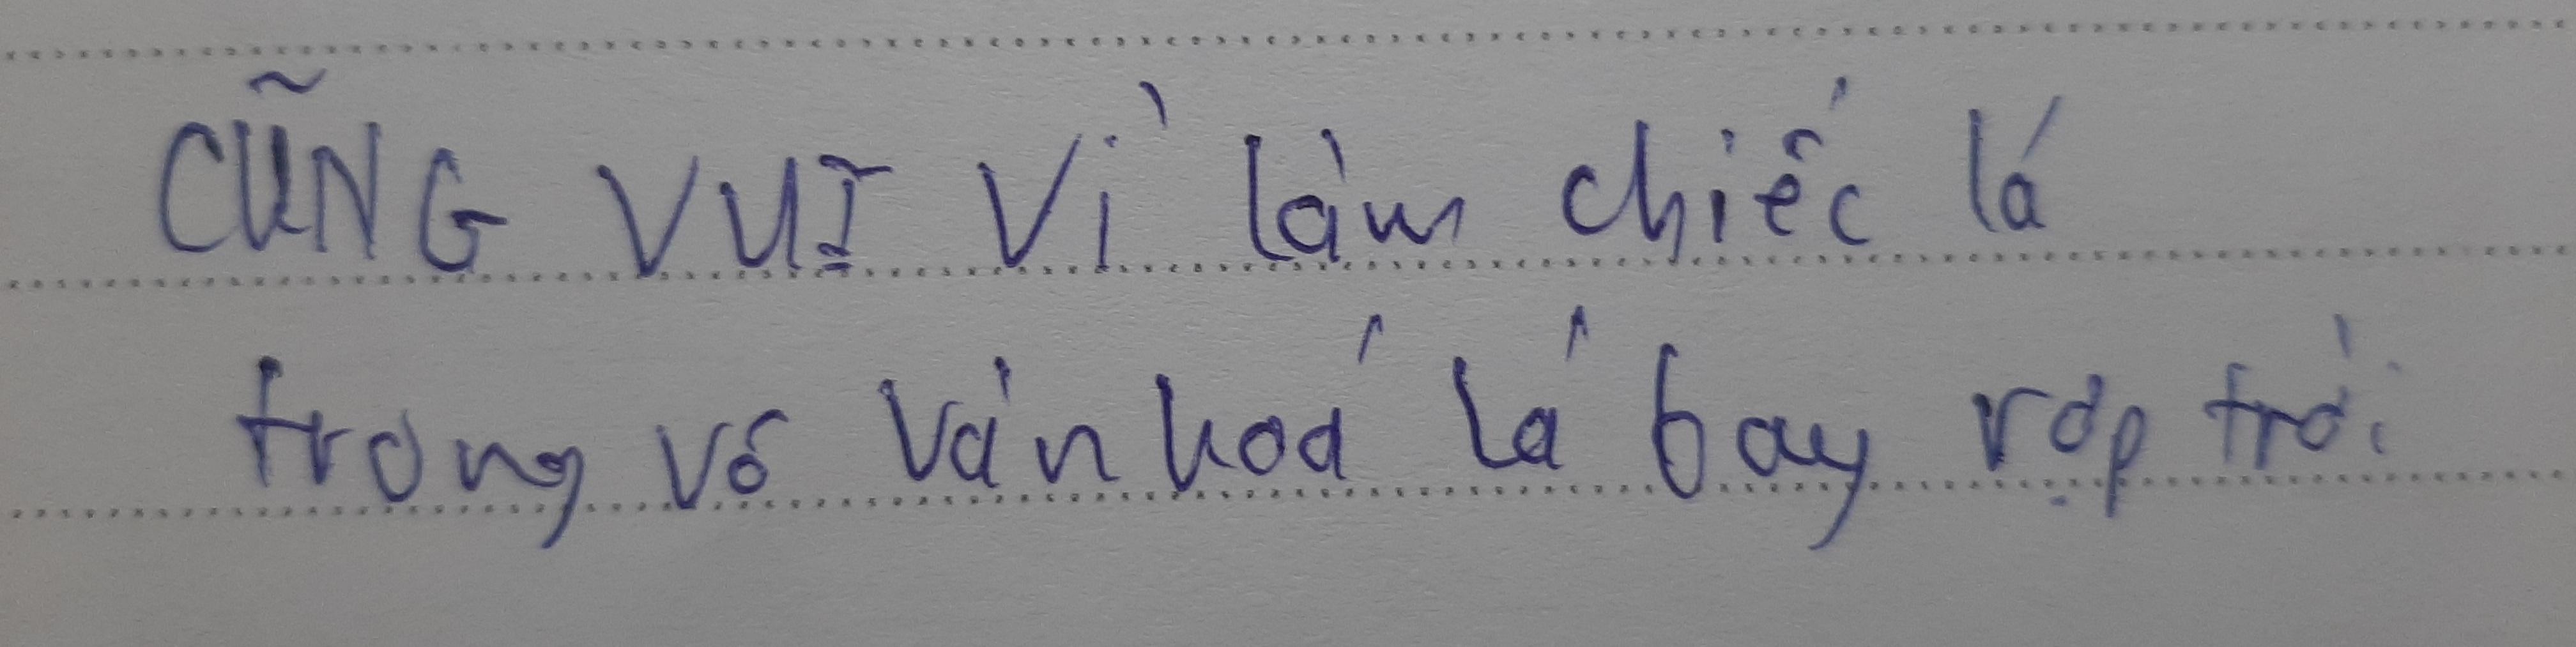 CŨNG VUI Vì làm chiếc lá
trong vố vàn hoá lá bay rợp trời